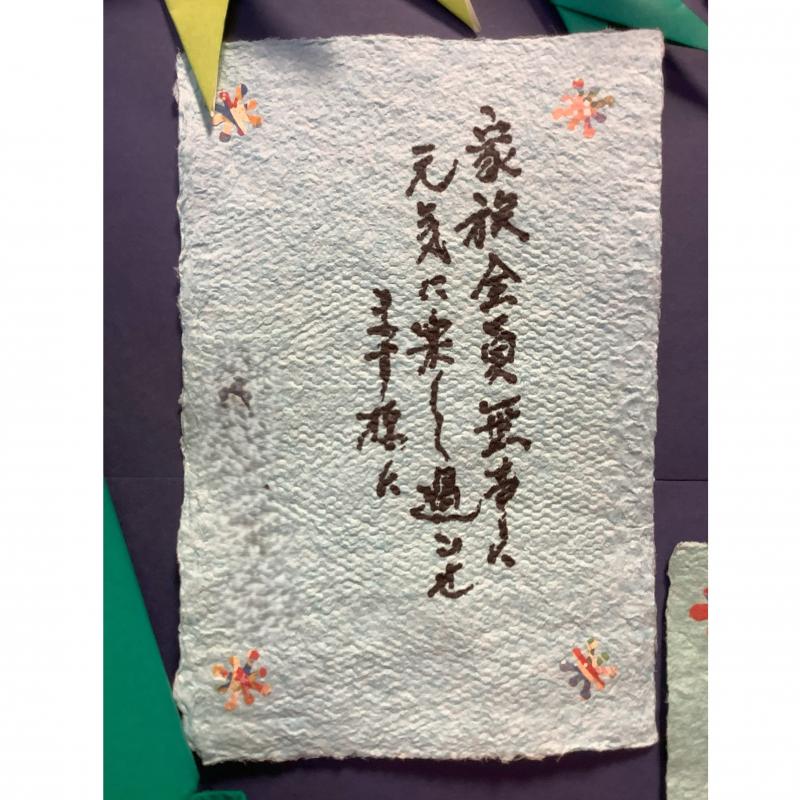 家族全員無事に
元気に楽しく過ごせ
ます様に